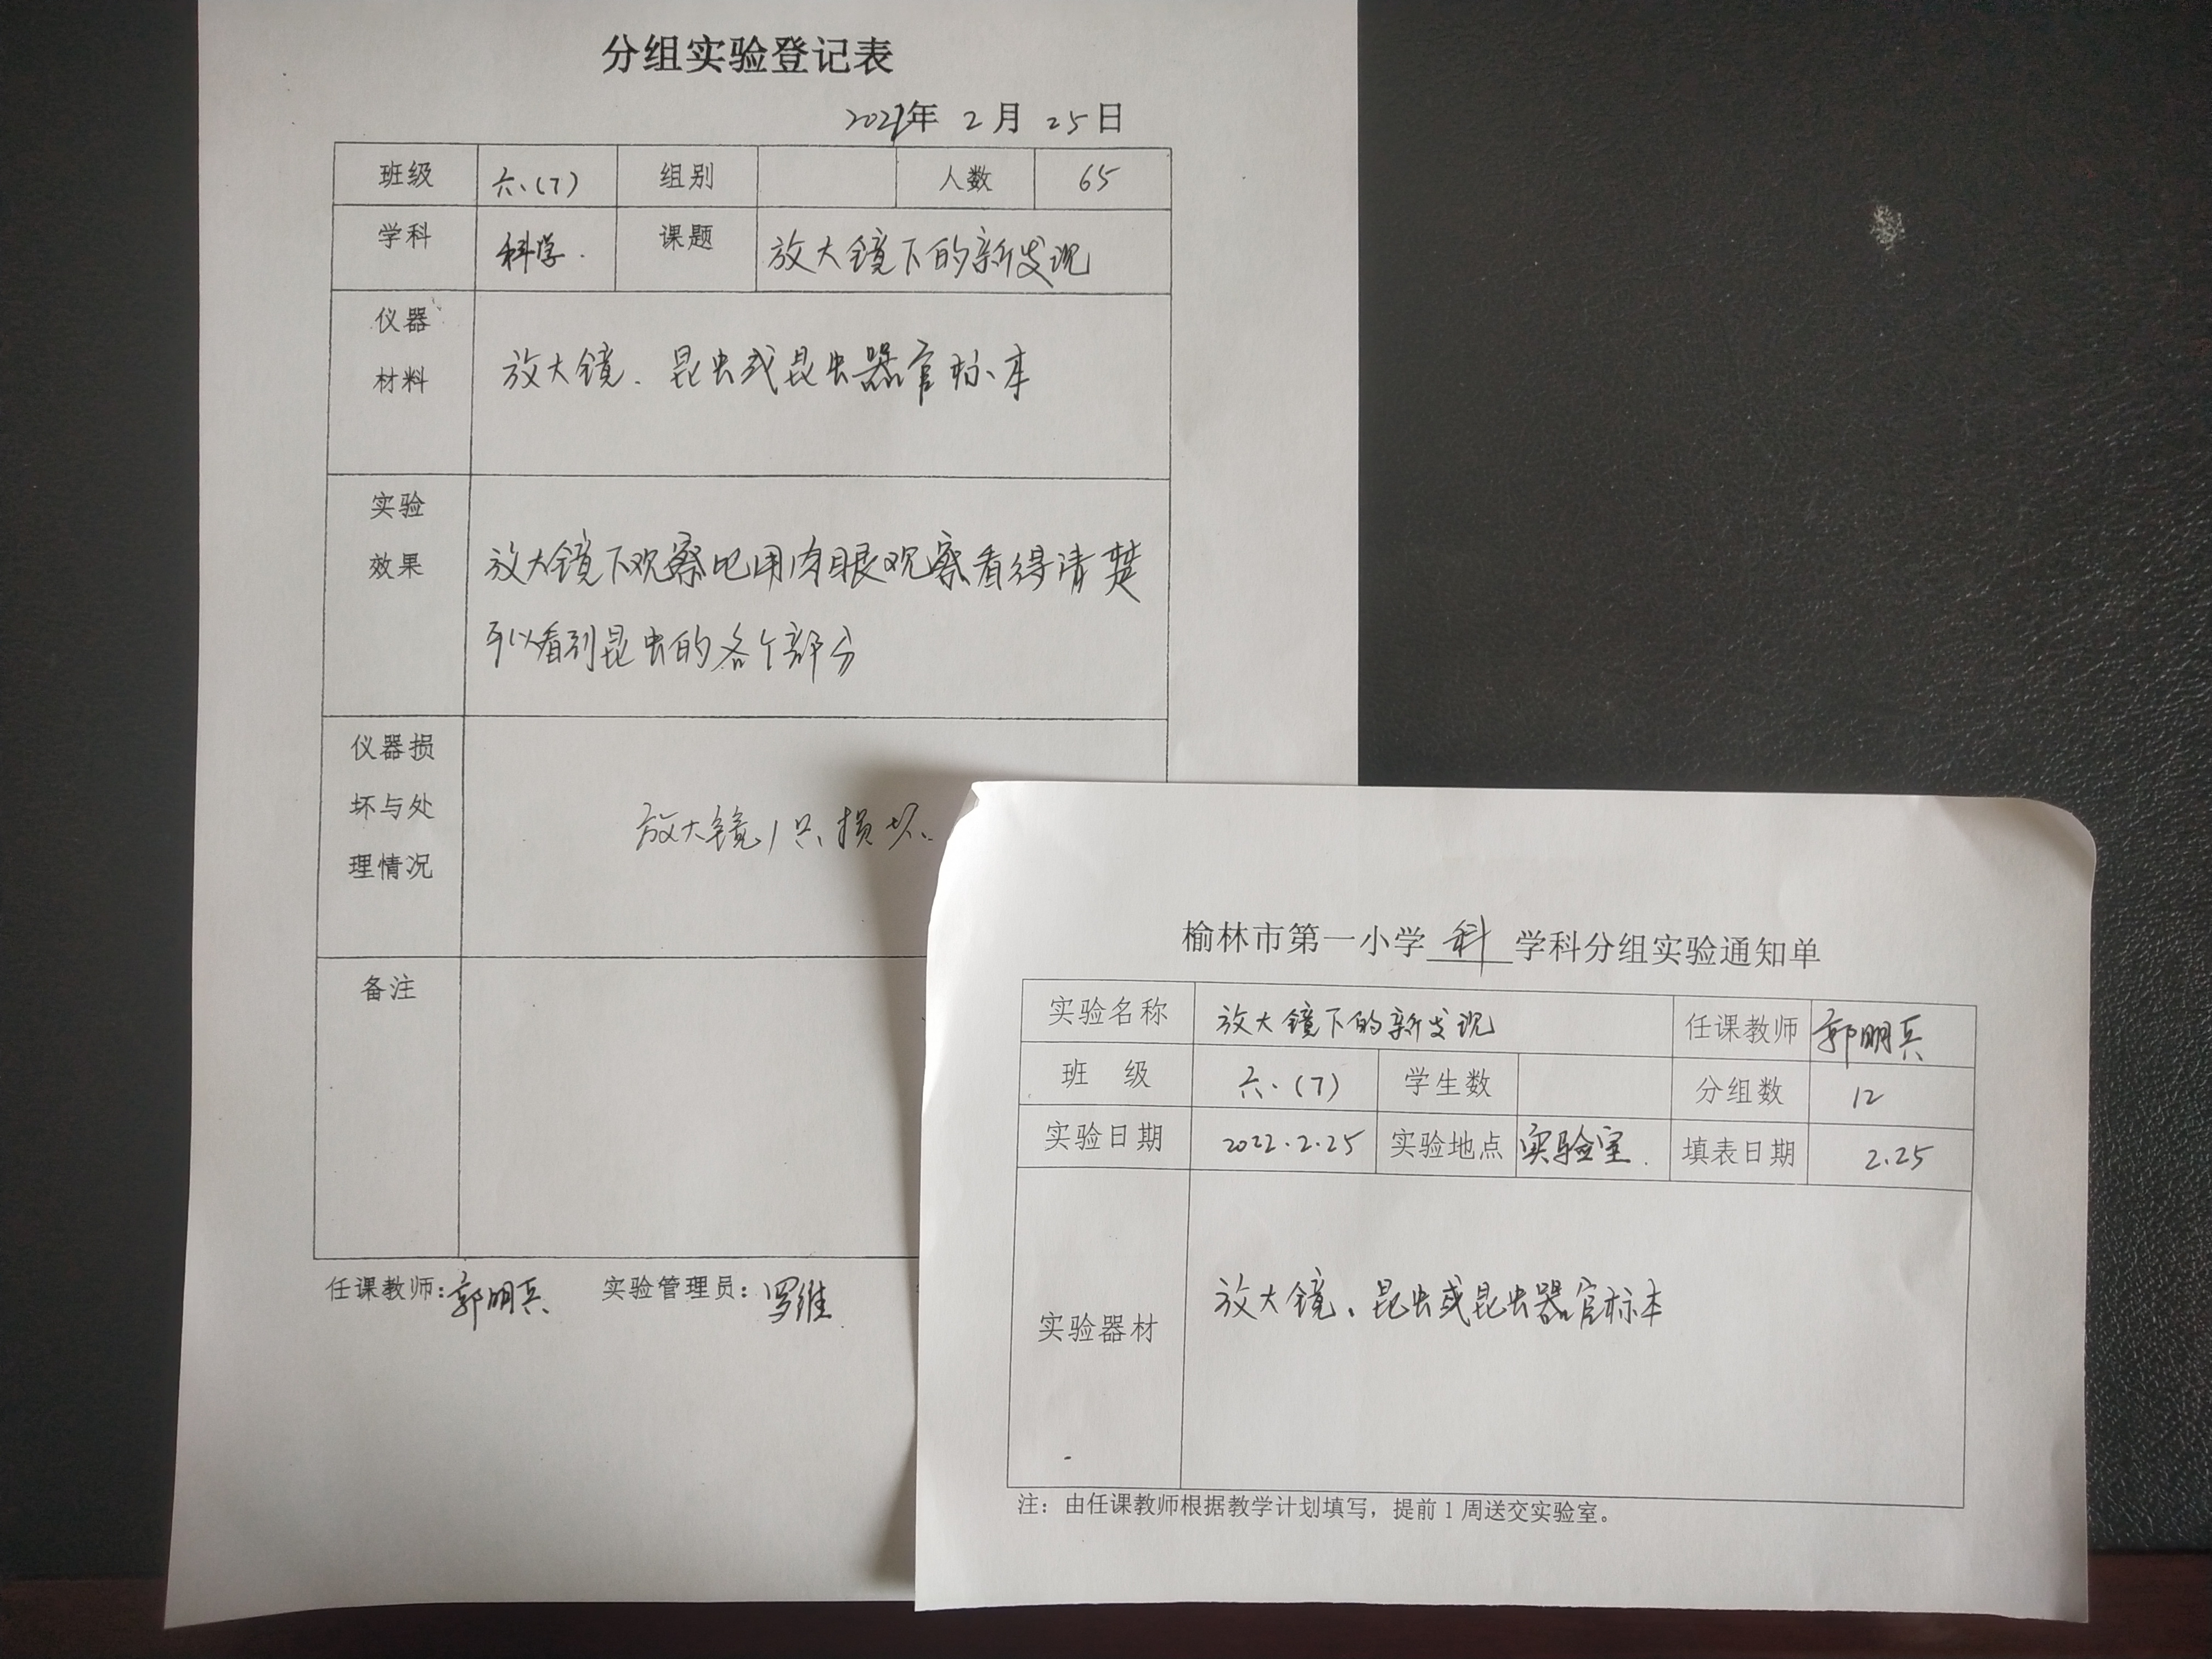 分组实验登记表
2022年 2月 25日
班级 六.(7) 组别 人数 65
学科 科学. 课题 放大镜下的新发现
仪器
材料
放大镜、昆虫或昆虫器官标本
实验
效果
放大镜下观察比用肉眼观察看得清楚
可以看到昆虫的各个部分
仪器损
坏与处
理情况
放大镜1只损坏.
备注
任课教师:郭明兵 实验管理员:罗维
榆林市第一小学 科 学科分组实验通知单
实验名称 放大镜下的新发现 任课教师 郭明兵
班 级 六.(7) 学生数 分组数 12
实验日期 2022.2.25 实验地点 实验室. 填表日期 2.25
实验器材 放大镜、昆虫或昆虫器官标本
注：由任课教师根据教学计划填写，提前1周送交实验室。